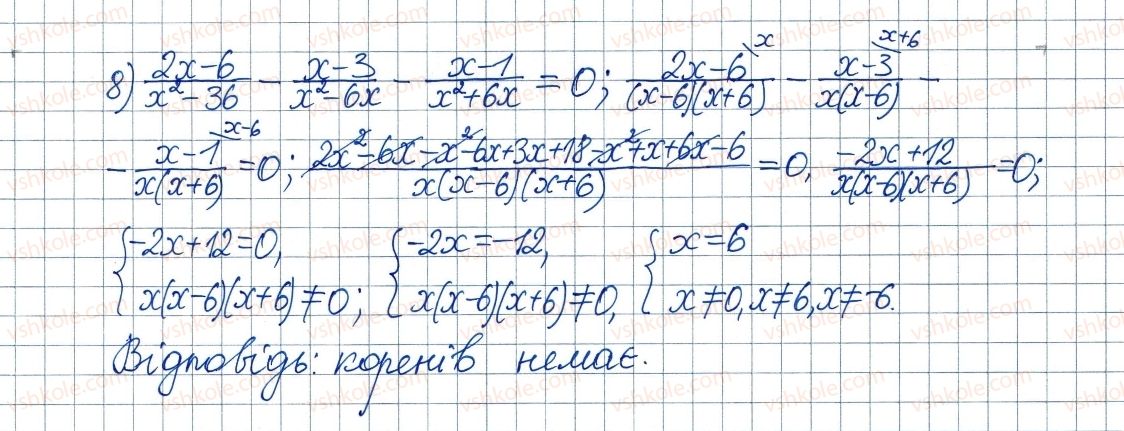 8) (2x-6)/(x²-36) - (x-3)/(x²-6x) - (x-1)/(x²+6x) = 0; (2x-6)/((x-6)(x+6)) \x - (x-3)/(x(x-6)) \x+6 -
- (x-1)/(x(x+6)) \x-6 = 0; (2x²-6x-x²-6x+3x+18-x²+x+6x-6)/(x(x-6)(x+6)) = 0, (-2x+12)/(x(x-6)(x+6)) = 0;
{-2x+12=0, {-2x=-12, {x=6
x(x-6)(x+6)≠0; x(x-6)(x+6)≠0, x≠0, x≠6, x≠-6.
Відповідь: коренів немає.